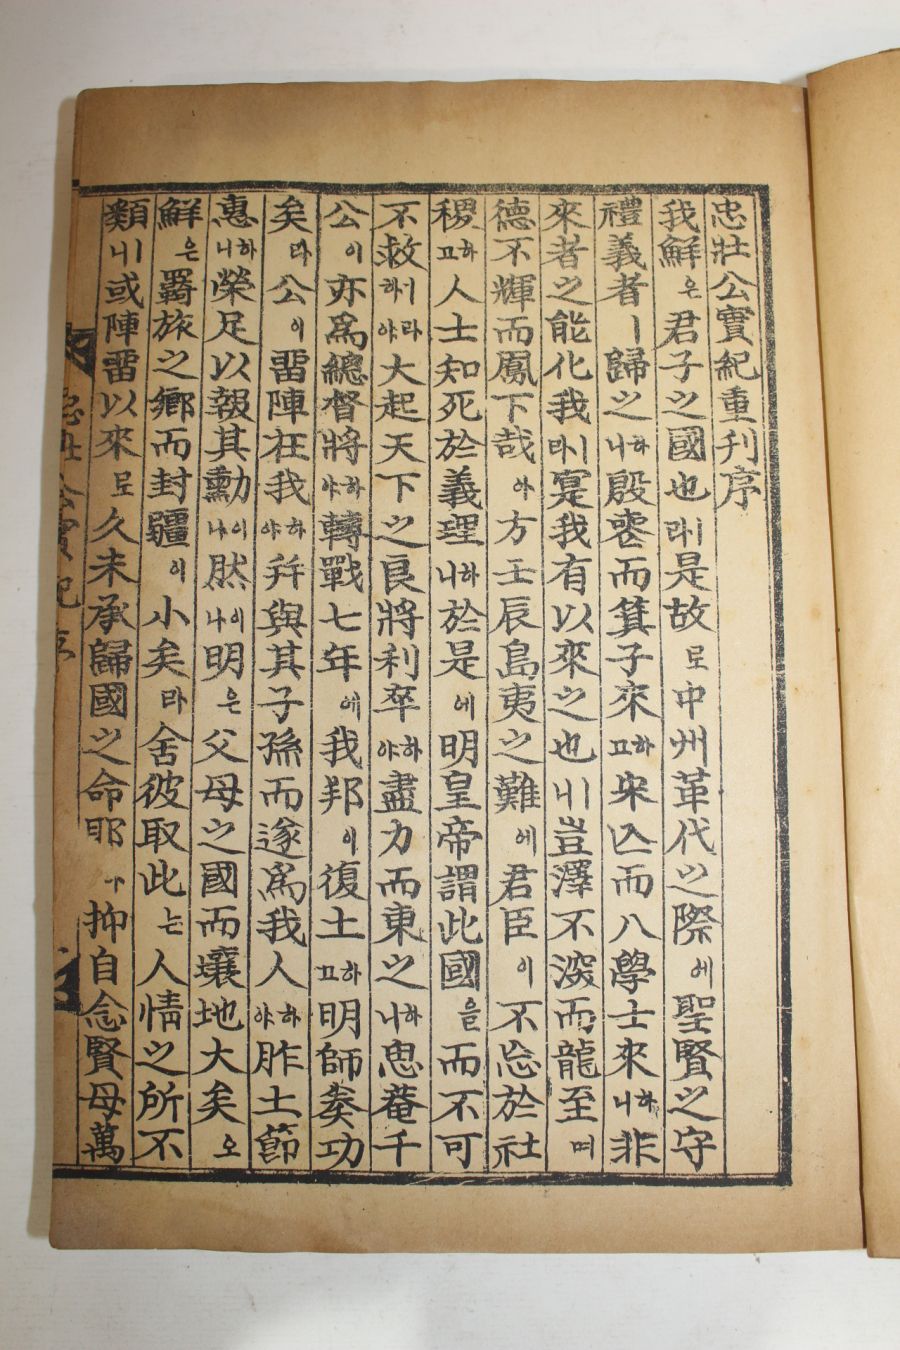 忠壯公實紀重刋序
我鮮은君子之國也ㅣ라是故로中州革代之際에聖賢之守
禮義者ㅣ歸之하니殷喪而箕子來하고宋亡而八學士來하니非
來者之能化我ㅣ라寔我有以來之也ㅣ니豈澤不深而龍至며
德不輝而鳳下哉아方壬辰島夷之難에君臣이不忘於社
稷하고人士知死於義理하니於是에明皇帝謂此國을而不可
不救ㅣ라하야大起天下之良將利卒하야盡力而東之하니忠菴千
公이亦爲總督將하야轉戰七年에我邦이復土하고明師奏功
矣라公이畱陣在我하야幷與其子孫而遂爲我人하야胙土節
惠하니榮足以報其勳이나然이나明은父母之國而壤地大矣오
鮮은羇旅之鄉而封疆이小矣라舍彼取此는人情之所不
類니或陣畱以來로久未承歸國之命耶아抑自念賢母萬